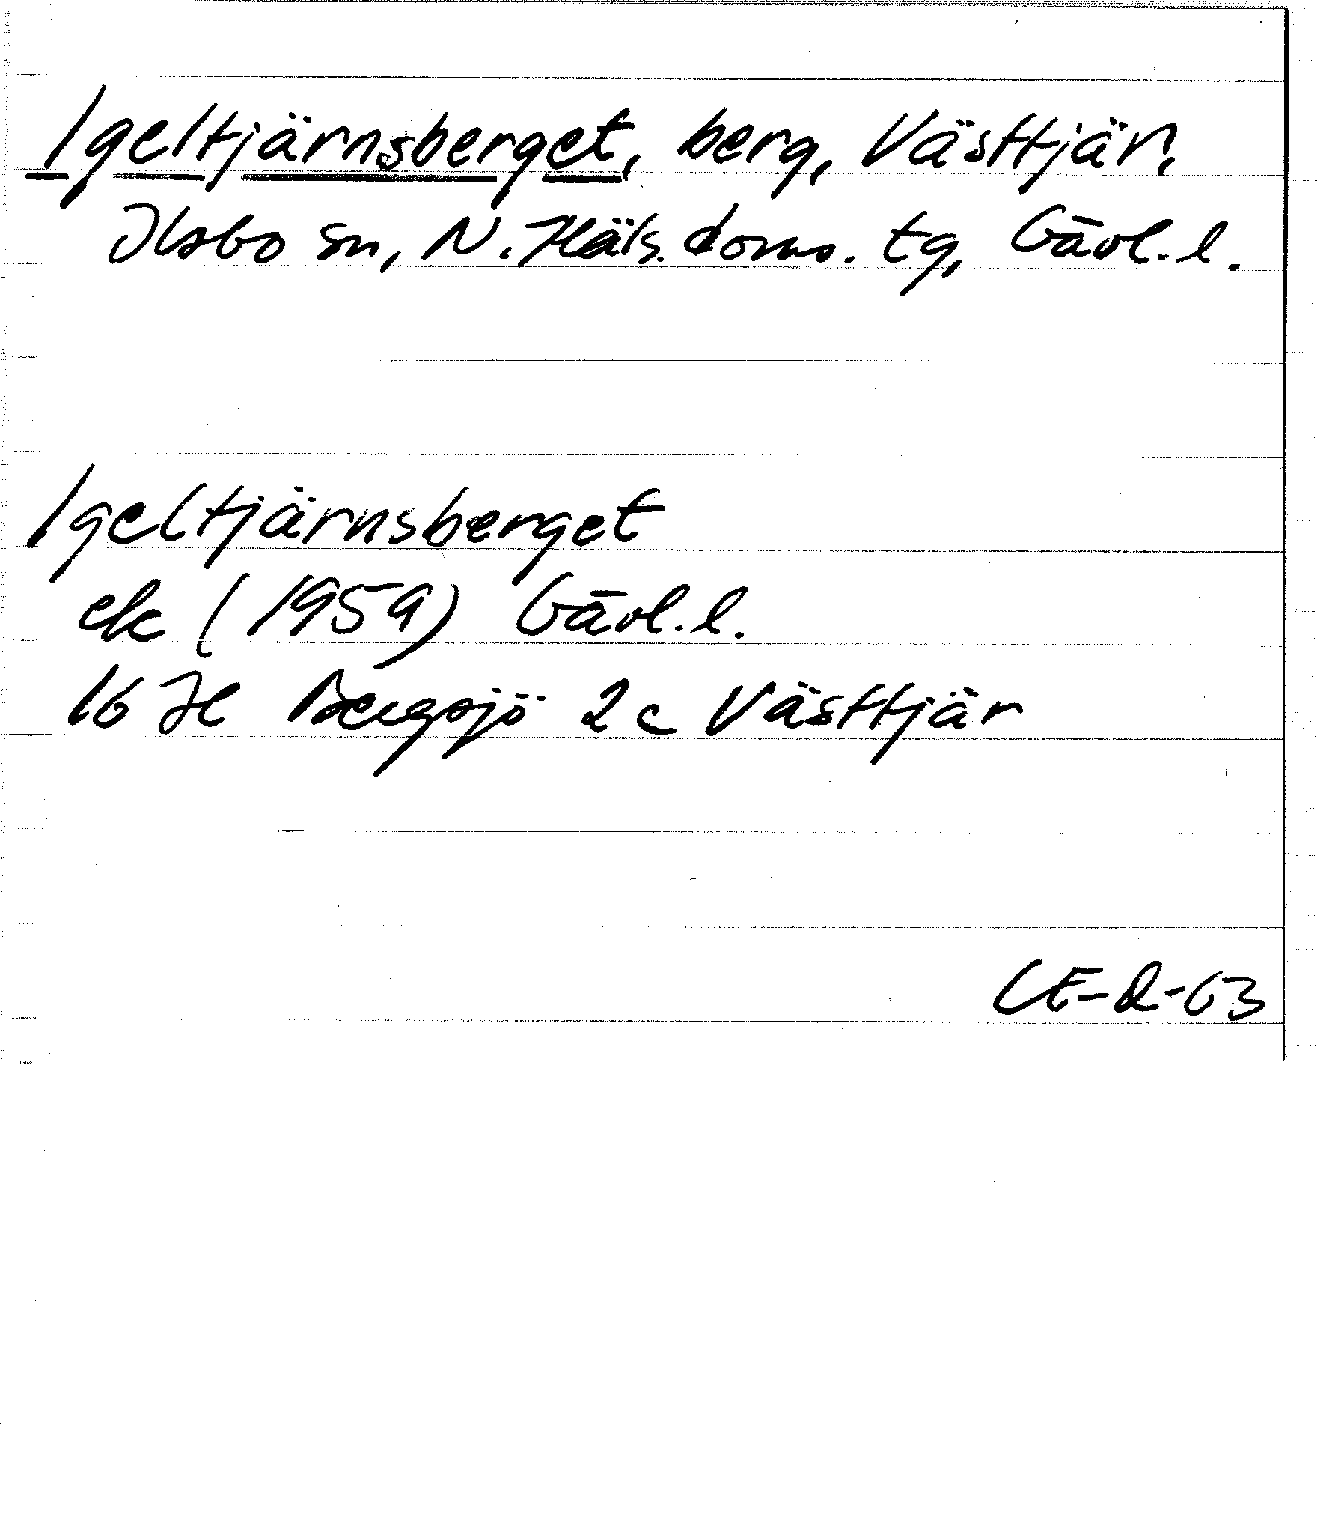 Igeltjärnsberget, berg, Västtjär,
Ilsbo sn, N. Häls. doms. tg, Gävl. l.
Igeltjärnsberget
ek (1959) Gävl. l.
16 H Bergsjö 2 c Västtjär
CE-R-63